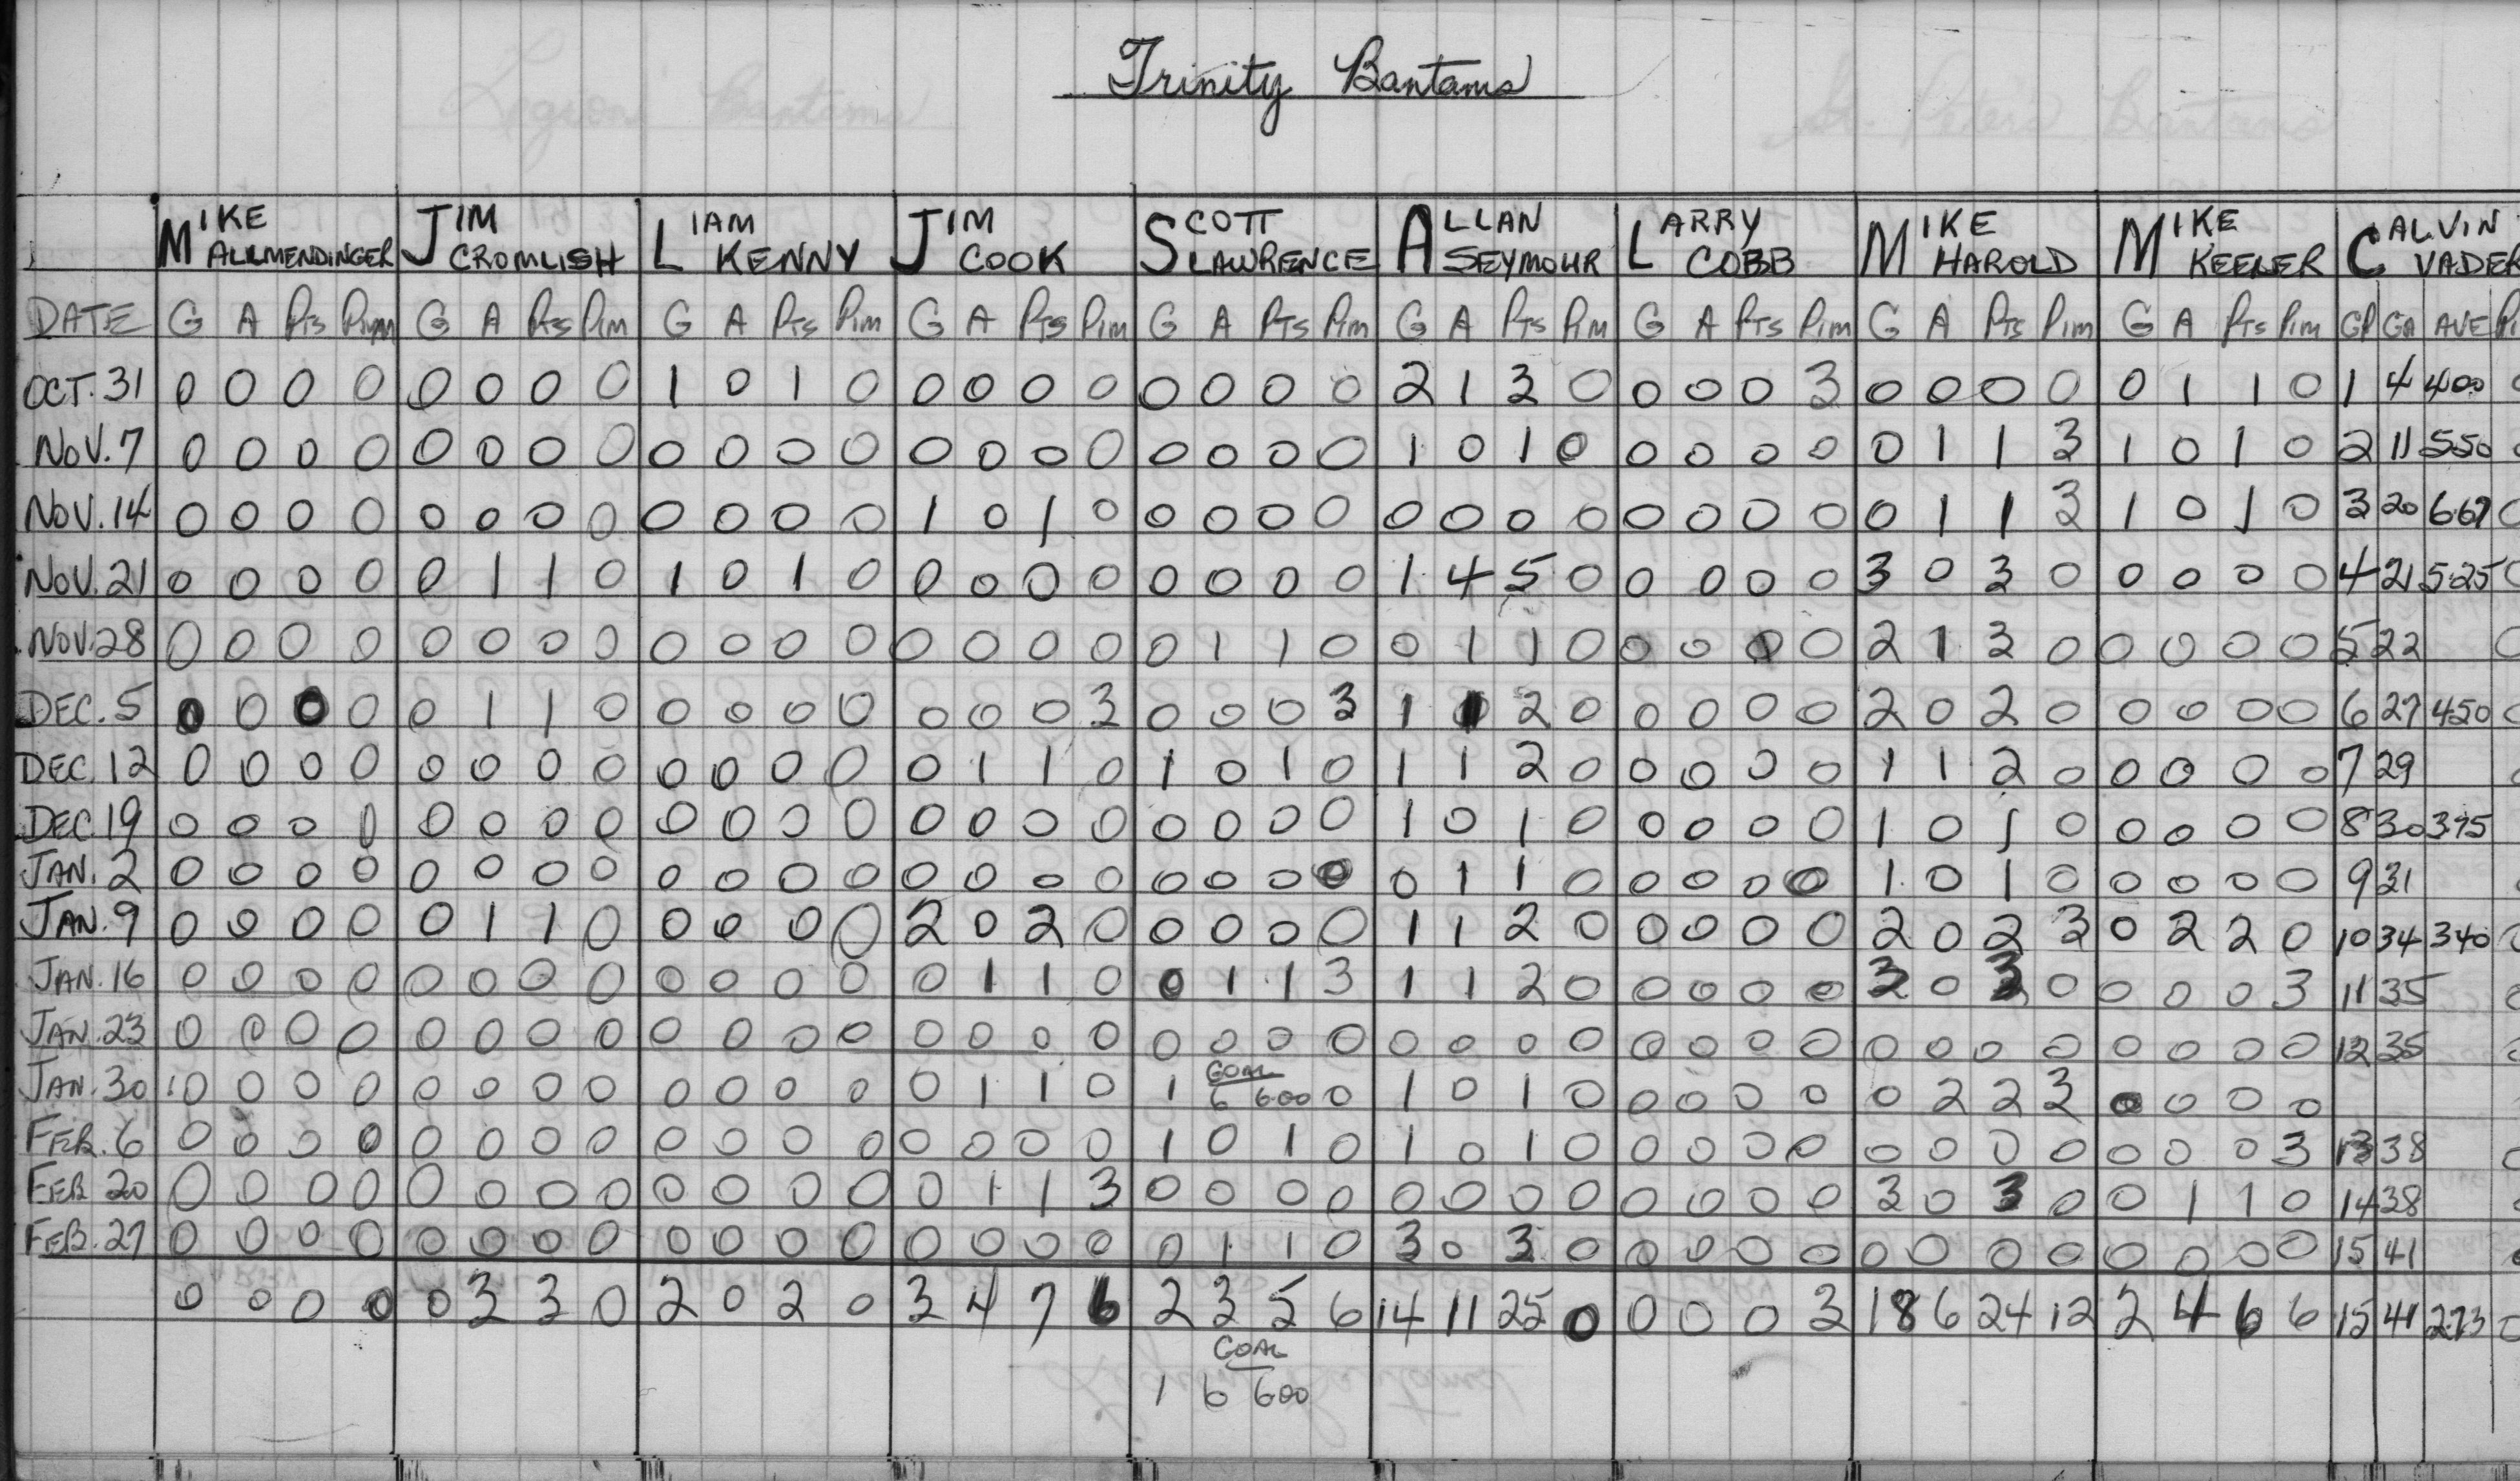 Trinity Bantams
MIKE ALLMENDINGER JIM CROMLISH LIAM KENNY JIM COOK SCOTT LAWRENCE ALLAN SEYMOUR LARRY COBB MIKE HAROLD MIKE KEELER CALVIN VADER
DATE G A Pts Pim G A Pts Pim G A Pts Pim G A Pts Pim G A Pts Pim G A Pts Pim G A Pts Pim G A Pts Pim G A Pts Pim GP GA AVE
OCT. 31 0 0 0 0 0 0 0 0 1 0 1 0 0 0 0 0 0 0 0 0 2 1 3 0 0 0 0 3 0 0 0 0 0 1 1 0 1 4 400
NOV. 7 0 0 0 0 0 0 0 0 0 0 0 0 0 0 0 0 0 0 0 0 1 0 1 0 0 0 0 0 0 1 1 3 1 0 1 0 2 11 550
NOV. 14 0 0 0 0 0 0 0 0 0 0 0 0 1 0 1 0 0 0 0 0 0 0 0 0 0 0 0 0 0 1 1 3 1 0 1 0 3 20 6.67
NOV. 21 0 0 0 0 0 1 1 0 1 0 1 0 0 0 0 0 0 0 0 0 1 4 5 0 0 0 0 0 3 0 3 0 0 0 0 0 4 21 5.25
NOV. 28 0 0 0 0 0 0 0 0 0 0 0 0 0 0 0 0 0 1 1 0 0 1 1 0 0 0 0 0 2 1 3 0 0 0 0 0 5 22
DEC. 5 0 0 0 0 0 1 1 0 0 0 0 0 0 0 0 3 0 0 0 3 1 1 2 0 0 0 0 0 2 0 2 0 0 0 0 0 6 27 450
DEC. 12 0 0 0 0 0 0 0 0 0 0 0 0 0 1 1 0 1 0 1 0 1 1 2 0 0 0 0 0 1 1 2 0 0 0 0 0 7 29
DEC. 19 0 0 0 0 0 0 0 0 0 0 0 0 0 0 0 0 0 0 0 0 1 0 1 0 0 0 0 0 1 0 1 0 0 0 0 0 8 30 375
JAN. 2 0 0 0 0 0 0 0 0 0 0 0 0 0 0 0 0 0 0 0 0 0 1 1 0 0 0 0 0 1 0 1 0 0 0 0 0 9 31
JAN. 9 0 0 0 0 0 1 1 0 0 0 0 0 2 0 2 0 0 0 0 0 1 1 2 0 0 0 0 0 2 0 2 3 0 2 2 0 10 34 340
JAN. 16 0 0 0 0 0 0 0 0 0 0 0 0 0 1 1 0 0 1 1 3 1 1 2 0 0 0 0 0 3 0 3 0 0 0 0 3 11 35
JAN. 23 0 0 0 0 0 0 0 0 0 0 0 0 0 0 0 0 0 0 0 0 0 0 0 0 0 0 0 0 0 0 0 0 0 0 0 0 12 35
GOAL
JAN. 30 0 0 0 0 0 0 0 0 0 0 0 0 0 1 1 0 1 6 600 0 1 0 1 0 0 0 0 0 0 2 2 3 0 0 0 0
FEB. 6 0 0 0 0 0 0 0 0 0 0 0 0 0 0 0 0 1 0 1 0 1 0 1 0 0 0 0 0 0 0 0 0 0 0 0 3 13 38
FEB 20 0 0 0 0 0 0 0 0 0 0 0 0 0 1 1 3 0 0 0 0 0 0 0 0 0 0 0 0 3 0 3 0 0 1 1 0 14 38
FEB. 27 0 0 0 0 0 0 0 0 0 0 0 0 0 0 0 0 0 1 1 0 3 0 3 0 0 0 0 0 0 0 0 0 0 0 0 0 15 41
0 0 0 0 0 3 3 0 2 0 2 0 3 4 7 6 2 3 5 6 14 11 25 0 0 0 0 3 18 6 24 12 2 4 6 6 15 41 273
GOAL
1 6 600